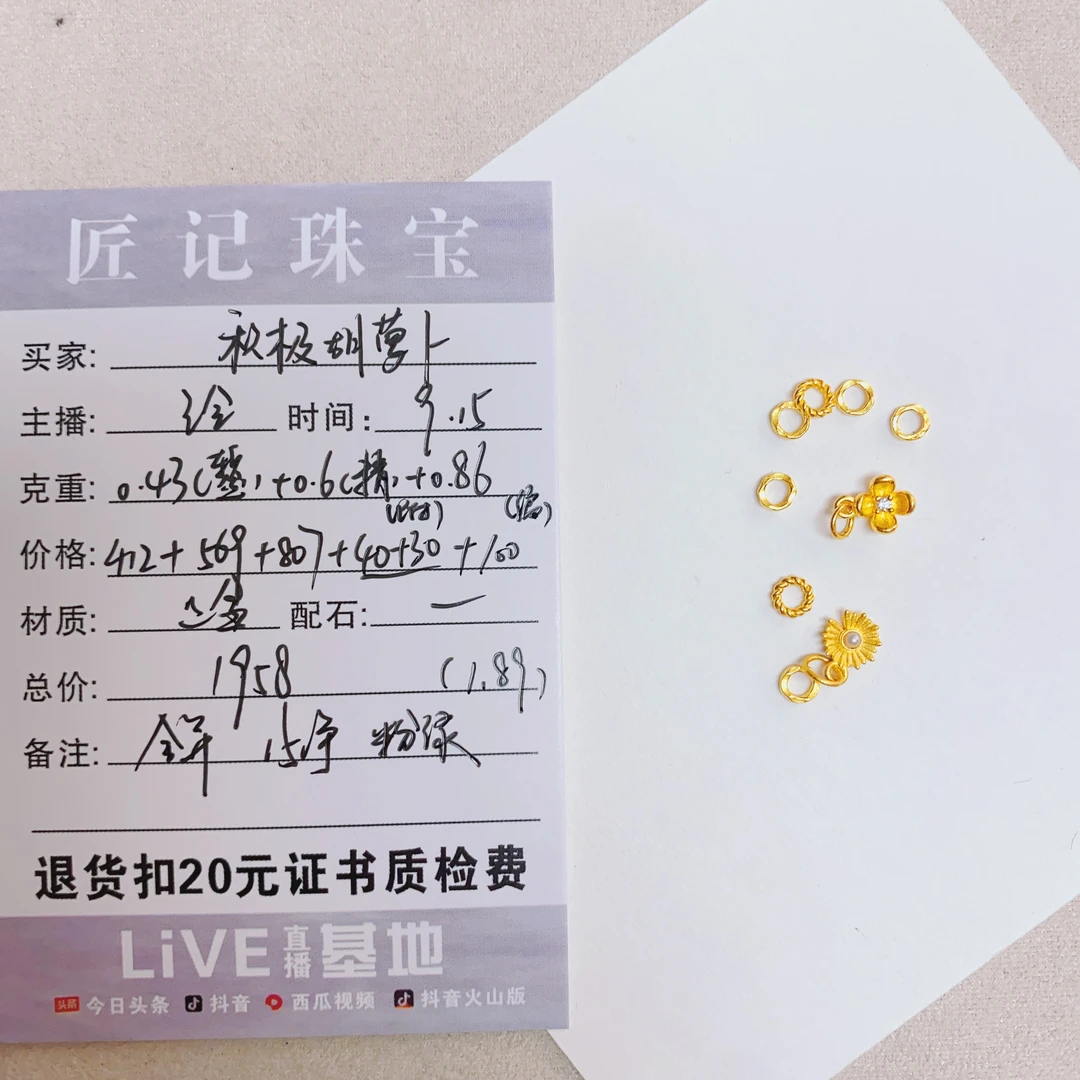 匠记珠宝
买家: 积极胡萝卜
主播: 时间: 9.15
克重: 0.43( )+0.6(精)+0.86
价格: 412+569+807+40+30+100
材质: 足金 配石: 一
总价: 1958 (1.89)
备注: 全年 15净 粉绿
退货扣20元证书质检费
LiVE直播基地
头条 今日头条 抖音 西瓜视频 抖音火山版